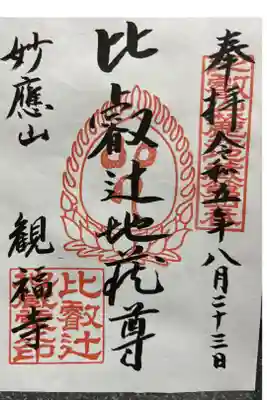 奉拝 令和五年八月二十三日
比叡辻地蔵尊
妙應山 観福寺
比叡辻